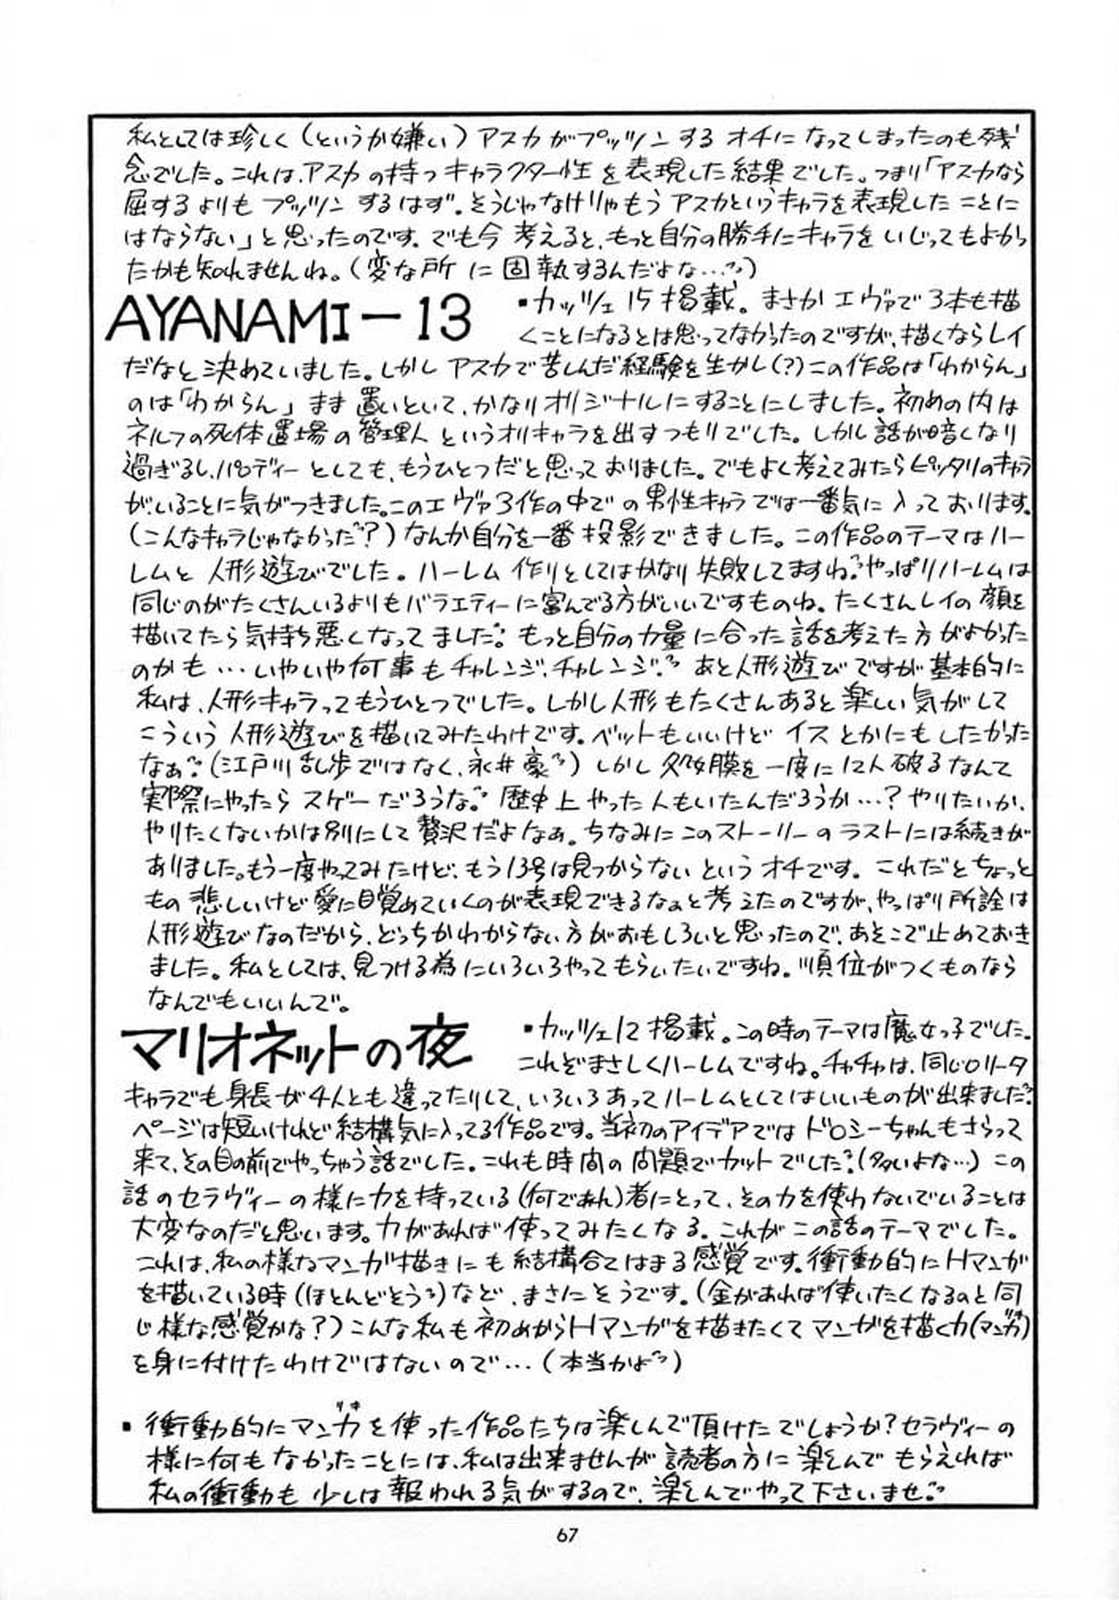 私としては珍しく（というか嫌い）アスカがプッツンするオチになってしまったのも残
念でした。これは、アスカの持つキャラクター性を表現した結果でした。つまり「アスカなら
屈するよりもプッツンするはず。そうじゃなけりゃもうアスカというキャラを表現したことに
はならない」と思ったのです。でも今考えると、もっと自分の勝手にキャラをいじってもよかっ
たかも知れませんね。（変な所に固執するんだよな…）
AYANAMI－13
▪カッツェ15掲載。まさかエヴァで3本も描
くことになるとは思ってなかったのですが、描くならレイ
だなと決めていました。しかしアスカで苦しんだ経験を生かし（？）この作品は「わからん」
のは「わからん」まま置いといて、かなりオリジナルにすることにしました。初めの内は
ネルフの死体置場の管理人というオリキャラを出すつもりでした。しかし話が暗くなり
過ぎるし、パロディーとしても、もうひとつだと思っておりました。でもよく考えてみたらピッタリのキャラ
がいることに気がつきました。このエヴァ3作の中での男性キャラでは一番気に入っております。
（こんなキャラじゃなかった？）なんか自分を一番投影できました。この作品のテーマはハー
レムと人形遊びでした。ハーレム作りとしてはかなり失敗してますね。やっぱりハーレムは
同じのがたくさんいるよりもバラエティーに富んでる方がいいですものね。たくさんレイの顔を
描いてたら気持ち悪くなってました。もっと自分の力量に合った話を考えた方がよかった
のかも…いやいや何事もチャレンジ、チャレンジ。あと人形遊びですが基本的に
私は、人形キャラってもうひとつでした。しかし人形もたくさんあると楽しい気がして
こういう人形遊びを描いてみたわけです。ベットもいいけどイスとかにもしたかった
なぁ。（江戸川乱歩ではなく、永井豪）しかし処女膜を一度に12人破るなんて
実際にやったらスゲーだろうな。歴史上やった人もいたんだろうか…？やりたいか、
やりたくないかは別にして贅沢だよなぁ。ちなみにこのストーリーのラストには続きが
ありました。もう一度やってみたけど、もう13号は見つからないというオチです。これだとちょっと
もの悲しいけど愛に目覚めていくのが表現できるなぁと考えたのですが、やっぱり所詮は
人形遊びなのだから、どっちかわからない方がおもしろいと思ったので、あそこで止めておき
ました。私としては、見つける為にいろいろやってもらいたいですね。順位がつくものなら
なんでもいいんで。
マリオネットの夜
▪カッツェ12掲載。この時のテーマは魔女っ子でした。
これぞまさしくハーレムですね。チャチャは、同じロリータ
キャラでも身長が4人とも違ってたりして、いろいろあってハーレムとしてはいいものが出来ました。
ページは短いけれど結構気に入ってる作品です。当初のアイデアではドロシーちゃんもさらって
来て、その目の前でやっちゃう話でした。これも時間の問題でカットでした。（多いよな…）この
話のセラヴィーの様に力を持っている（何であれ）者にとって、その力を使わないでいることは
大変なのだと思います。力があれば使ってみたくなる。これがこの話のテーマでした。
これは、私の様なマンガ描きにも結構合てはまる感覚です。衝動的にHマンガ
を描いている時（ほとんどそう）など、まさにそうです。（金があれば使いたくなるのと同
じ様な感覚かな？）こんな私も初めからHマンガを描きたくてマンガを描く力（マンガ力）
を身に付けたわけではないので…（本当かよ）
▪衝動的にマンガ力を使った作品たちは楽しんで頂けたでしょうか？セラヴィーの
様に何もなかったことには、私は出来ませんが読者の方に楽しんでもらえれば
私の衝動も少しは報われる気がするので、楽しんでやって下さいませ。
67